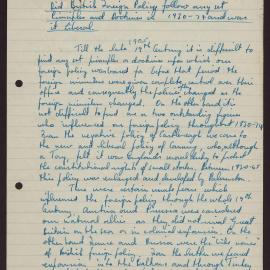 Did British Foreign Policy follow any set
Principles and Doctrines in 1830-74 and were
it Liberal.
1905.
Till the late 19th Century it is difficult to
find any set principle or doctrine upon which our
foreign policy was based. Before that period the
foreign minister was given complete control over their
office and consequently the policies changed as the
foreign ministers changed. On the other hand it is
not difficult to find one or two outstanding
who influenced our foreign policy throughout 1830-74
From the negative policy of Castlereagh we come to
the new and liberal policy of Canning, who although
a Tory, felt it was England's duty to protect
the constitutional rights of small states. Between 1830-65
this policy was extended and developed by Palmerston.
There were certain main fears which
influenced the foreign policy through the whole 19th
century. Austria and Prussia were considered
our natural allies as they did not rival Great
Britain on the sea or in colonial expansion. On the
other hand France and Russia were the
of British foreign policy. From the Russia we feared
expansion into the Balkans and through Turkey